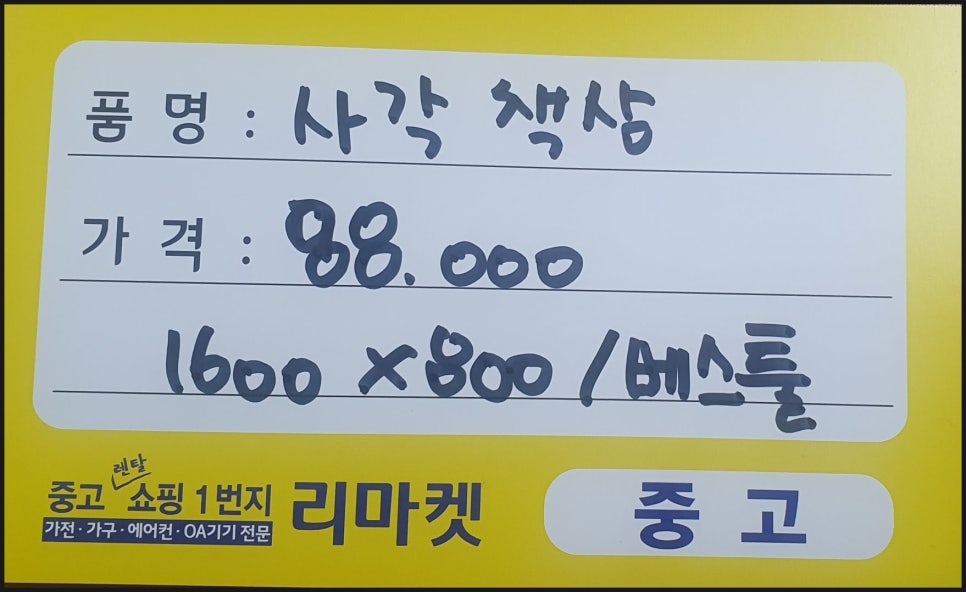 품 명 : 사각 책상
가 격 : 88.000
1600 × 800 / 베스툴
렌탈
중고 쇼핑 1번지
가전 · 가구 · 에어컨 · OA기기 전문
리마켓
중 고